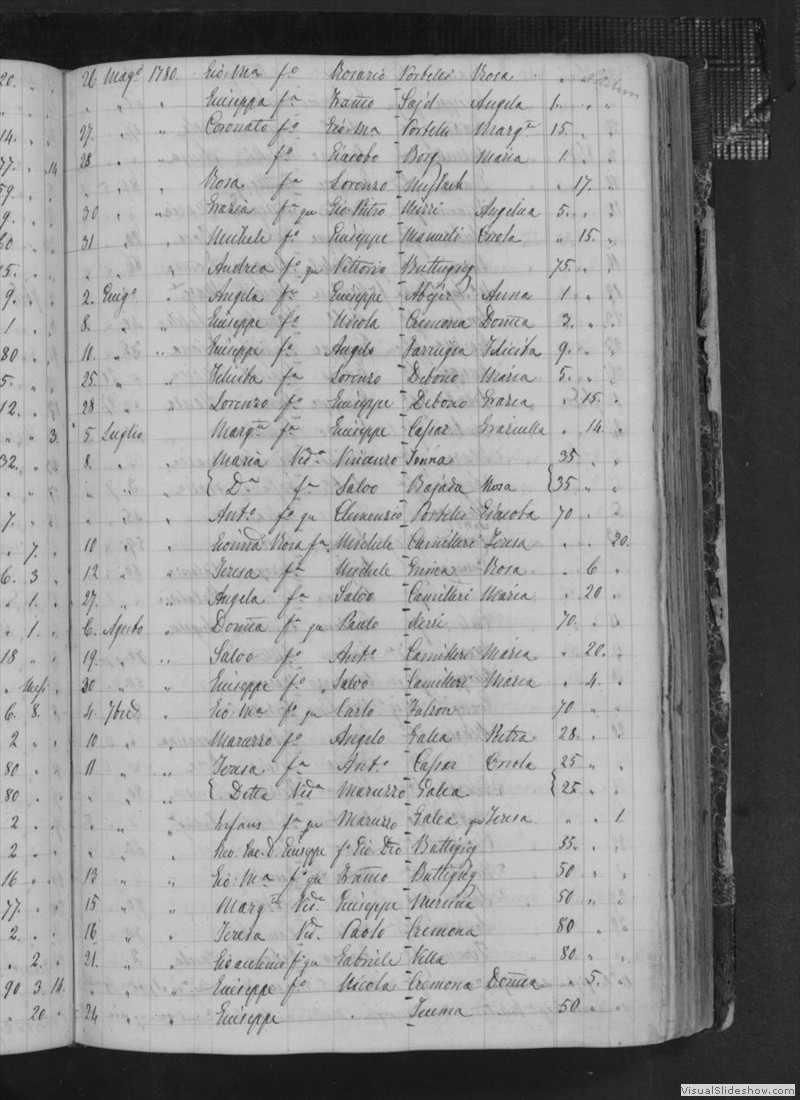 20. 26 Mago 1780. Gio: Ma fo Rosario Portelli Rosa
" " " Giuseppa fa Franco Sajd Angela 1. " "
14. 27. " " Coronato fo Gio: Ma Portelli Margta 15. "
77. " 14 28 " " fo Giacobo Borg Maria 1. "
59. " " " Rosa fa Lorenzo " 17. "
9. 30 " " Grazia fa qu Gio Pietro Angelica 5. "
60 31 " " Michele fo Giuseppe Mamuli " 15. "
15. " " " Andrea fo qu Vittorio Buttigieg 75. "
9. 2. Giugo " Angela fa Giuseppe Anna 1 " "
1 8. " " Giuseppe fo Nicola Cremona 3. "
80 11. " " Giuseppe fo Angelo Farrugia Felicita 9. "
5. 25. " " Felicita fa Lorenzo Debono Maria 5. "
12. 28 " " Lorenzo fo Giuseppe Debono Grazia " 15. "
" " 3. 5 Luglio Margta fa Giuseppe Capar " 14. "
32. 8. " " Maria Veda Vincenzo 35 " "
" " " { Da fa Salvo Bajada Rosa {35 " "
7. " " " Anto fo qu Clemenzio Portelli Giacoba 70
" 7. 10 " " Rosa fa Michele Camilleri Teresa " " 20.
6. 3 12 " " Teresa fa Michele Rosa " 6 "
" 1. 27. " " Angela fa Salvo Camilleri Maria " 20 "
" 1. 6. Agosto fa qu Paulo 70. "
18 " 19. " " Salvo fo Anto Camilleri Maria " 20. "
30 " " Giuseppe fo Salvo Camilleri Maria " 4. "
6. 8. 4. 7bre Gio: Ma fo qu Carlo Falzon 70 "
2 10 " " Maruzzo fo Angelo Galea Pietra 28. "
80 11 " " Teresa fa Anto Capar 25 "
80 " " " { Detta Veda Maruzzo Galea {25 "
2 " " " Infans fa qu Maruzzo Galea qu Teresa " " 1.
2 " " " D. Giuseppe fo Gio: Buttigieg 35. "
16 13 " " Gio: Ma fo qu Franco Buttigieg 50 "
77. 15 " " Margta Veda Giuseppe Mercieca 50 "
2. 16 " " Teresa Veda Paolo Cremona 80 "
" 2. 21. " " fo qu Gabriele Villa 80 "
90 3 14. " " " Giuseppe fo Nicola Cremona " 5. "
" 20. 24 " " Giuseppe 50 "
VisualSlideshow.com